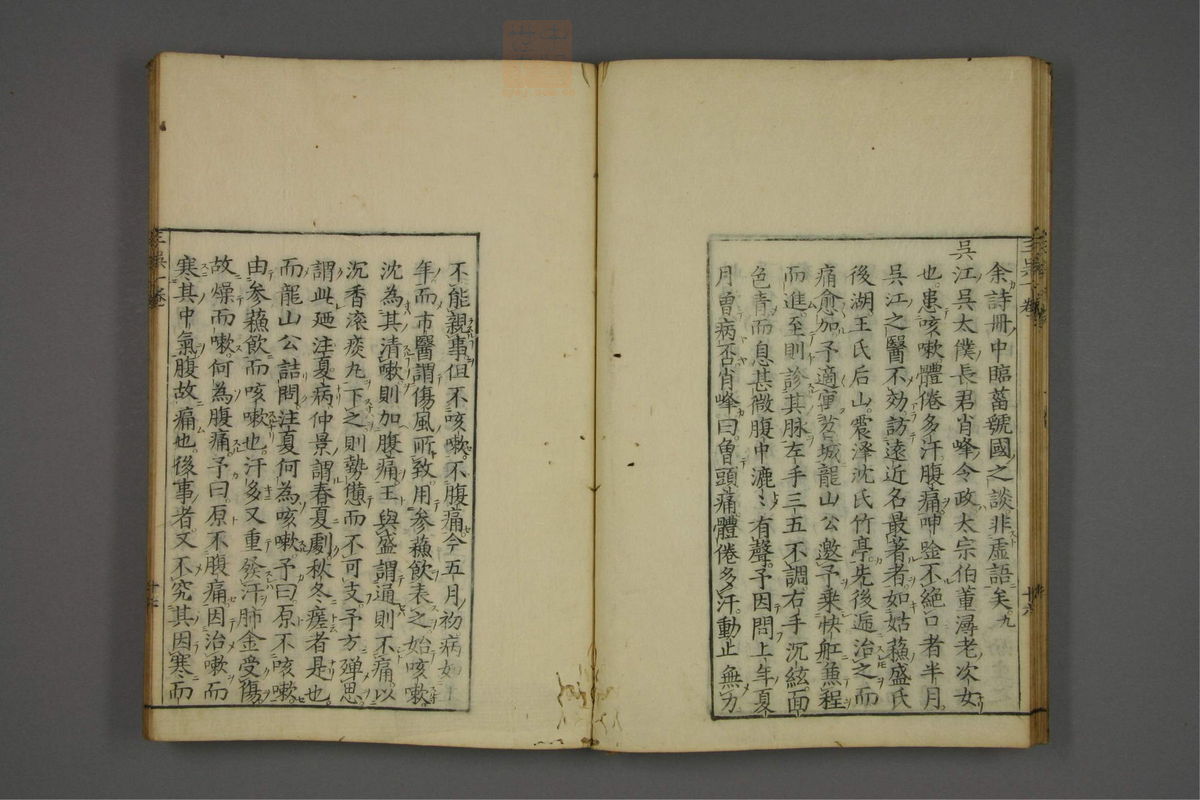 余詩册中臨菑虢國之談非虛語矣九
吳江吳太僕長君肖峰令政大宗伯董潯老次女
也患咳嗽體倦多汗腹痛呻吟不絕口者半月
吳江之醫不効訪遠近名最著者如姑蘓盛氏
後湖王氏后山震澤沈氏竹亭先後遞治之而
痛愈加予適寓苕城龍山公邀予乗快舡兼程
而進至則診其脉左手三五不調右手沉絃面
色青而息甚微腹中漉〻有聲予因問上年夏
月曾病否肖峰曰曾頭痛體倦多汗動止無力
不能親事但不咳嗽不腹痛今五月初病如上
年而市醫謂傷風所致用参蘓飲表之始咳嗽
沈為其清嗽則加腹痛王與盛謂通則不痛以
沉香滚痰丸下之則勢憊而不可支予方殫思
謂此廼注夏病仲景謂春夏劇秋冬瘥者是也
而龍山公詰問注夏何為咳嗽予曰原不咳嗽
由参蘓飲而咳嗽也汗多又重發汗肺金受傷
故燥而嗽何為腹痛予曰原不腹痛因治嗽而
寒其中氣腹故痛也後事者又不究其因寒而
三吳一卷
十六